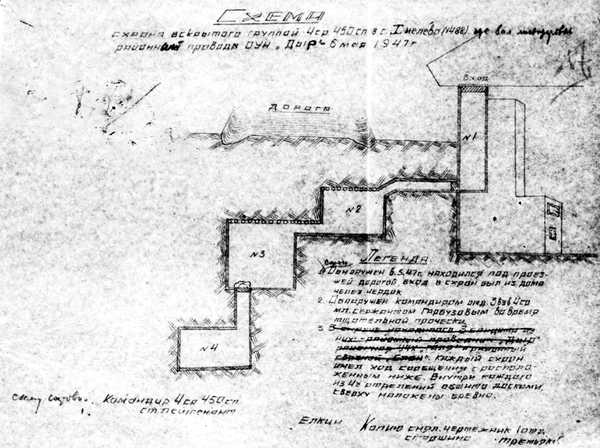 Схема
схрона вскрытого группой 4ср 450сп в с. где был
районный провода ОУН „Дыр" 6 мая 1947г.
Вход
Дорога
№1
№2
№3
№4
Легенда
1. Обнаружен 6.5.47г. находился под проез-
жей дорогой вход в схрон был из дома
через чердак
2. Обнаружен командиром отд. 4ср
мл. сержантом Гарбузовым во время
тщательной прочески.
3. Каждый схрон
имел ход сообщения с располо-
женным ниже. Внутри каждого
из 4х отделения обшито досками,
сверху наложены бревна.
Командир 4ср 450сп
ст. лейтенант
Елкин
Копию снял: чертежник
старшина